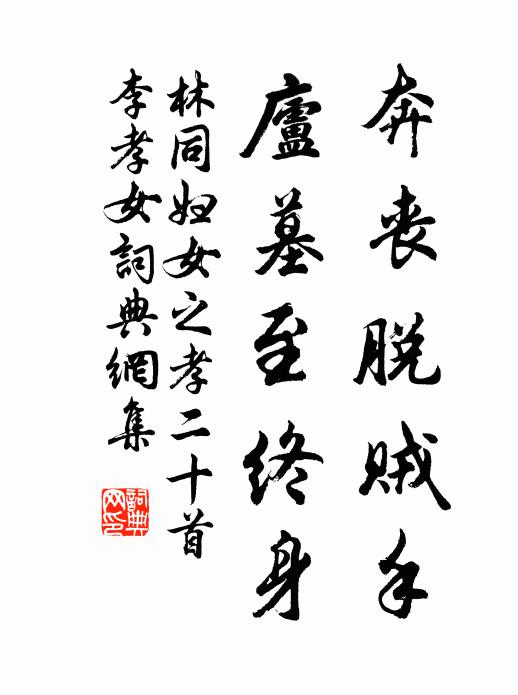 奔喪脫賊手
廬墓至終身
林同妇女之孝二十首
李孝女詞典網集
詞典网印